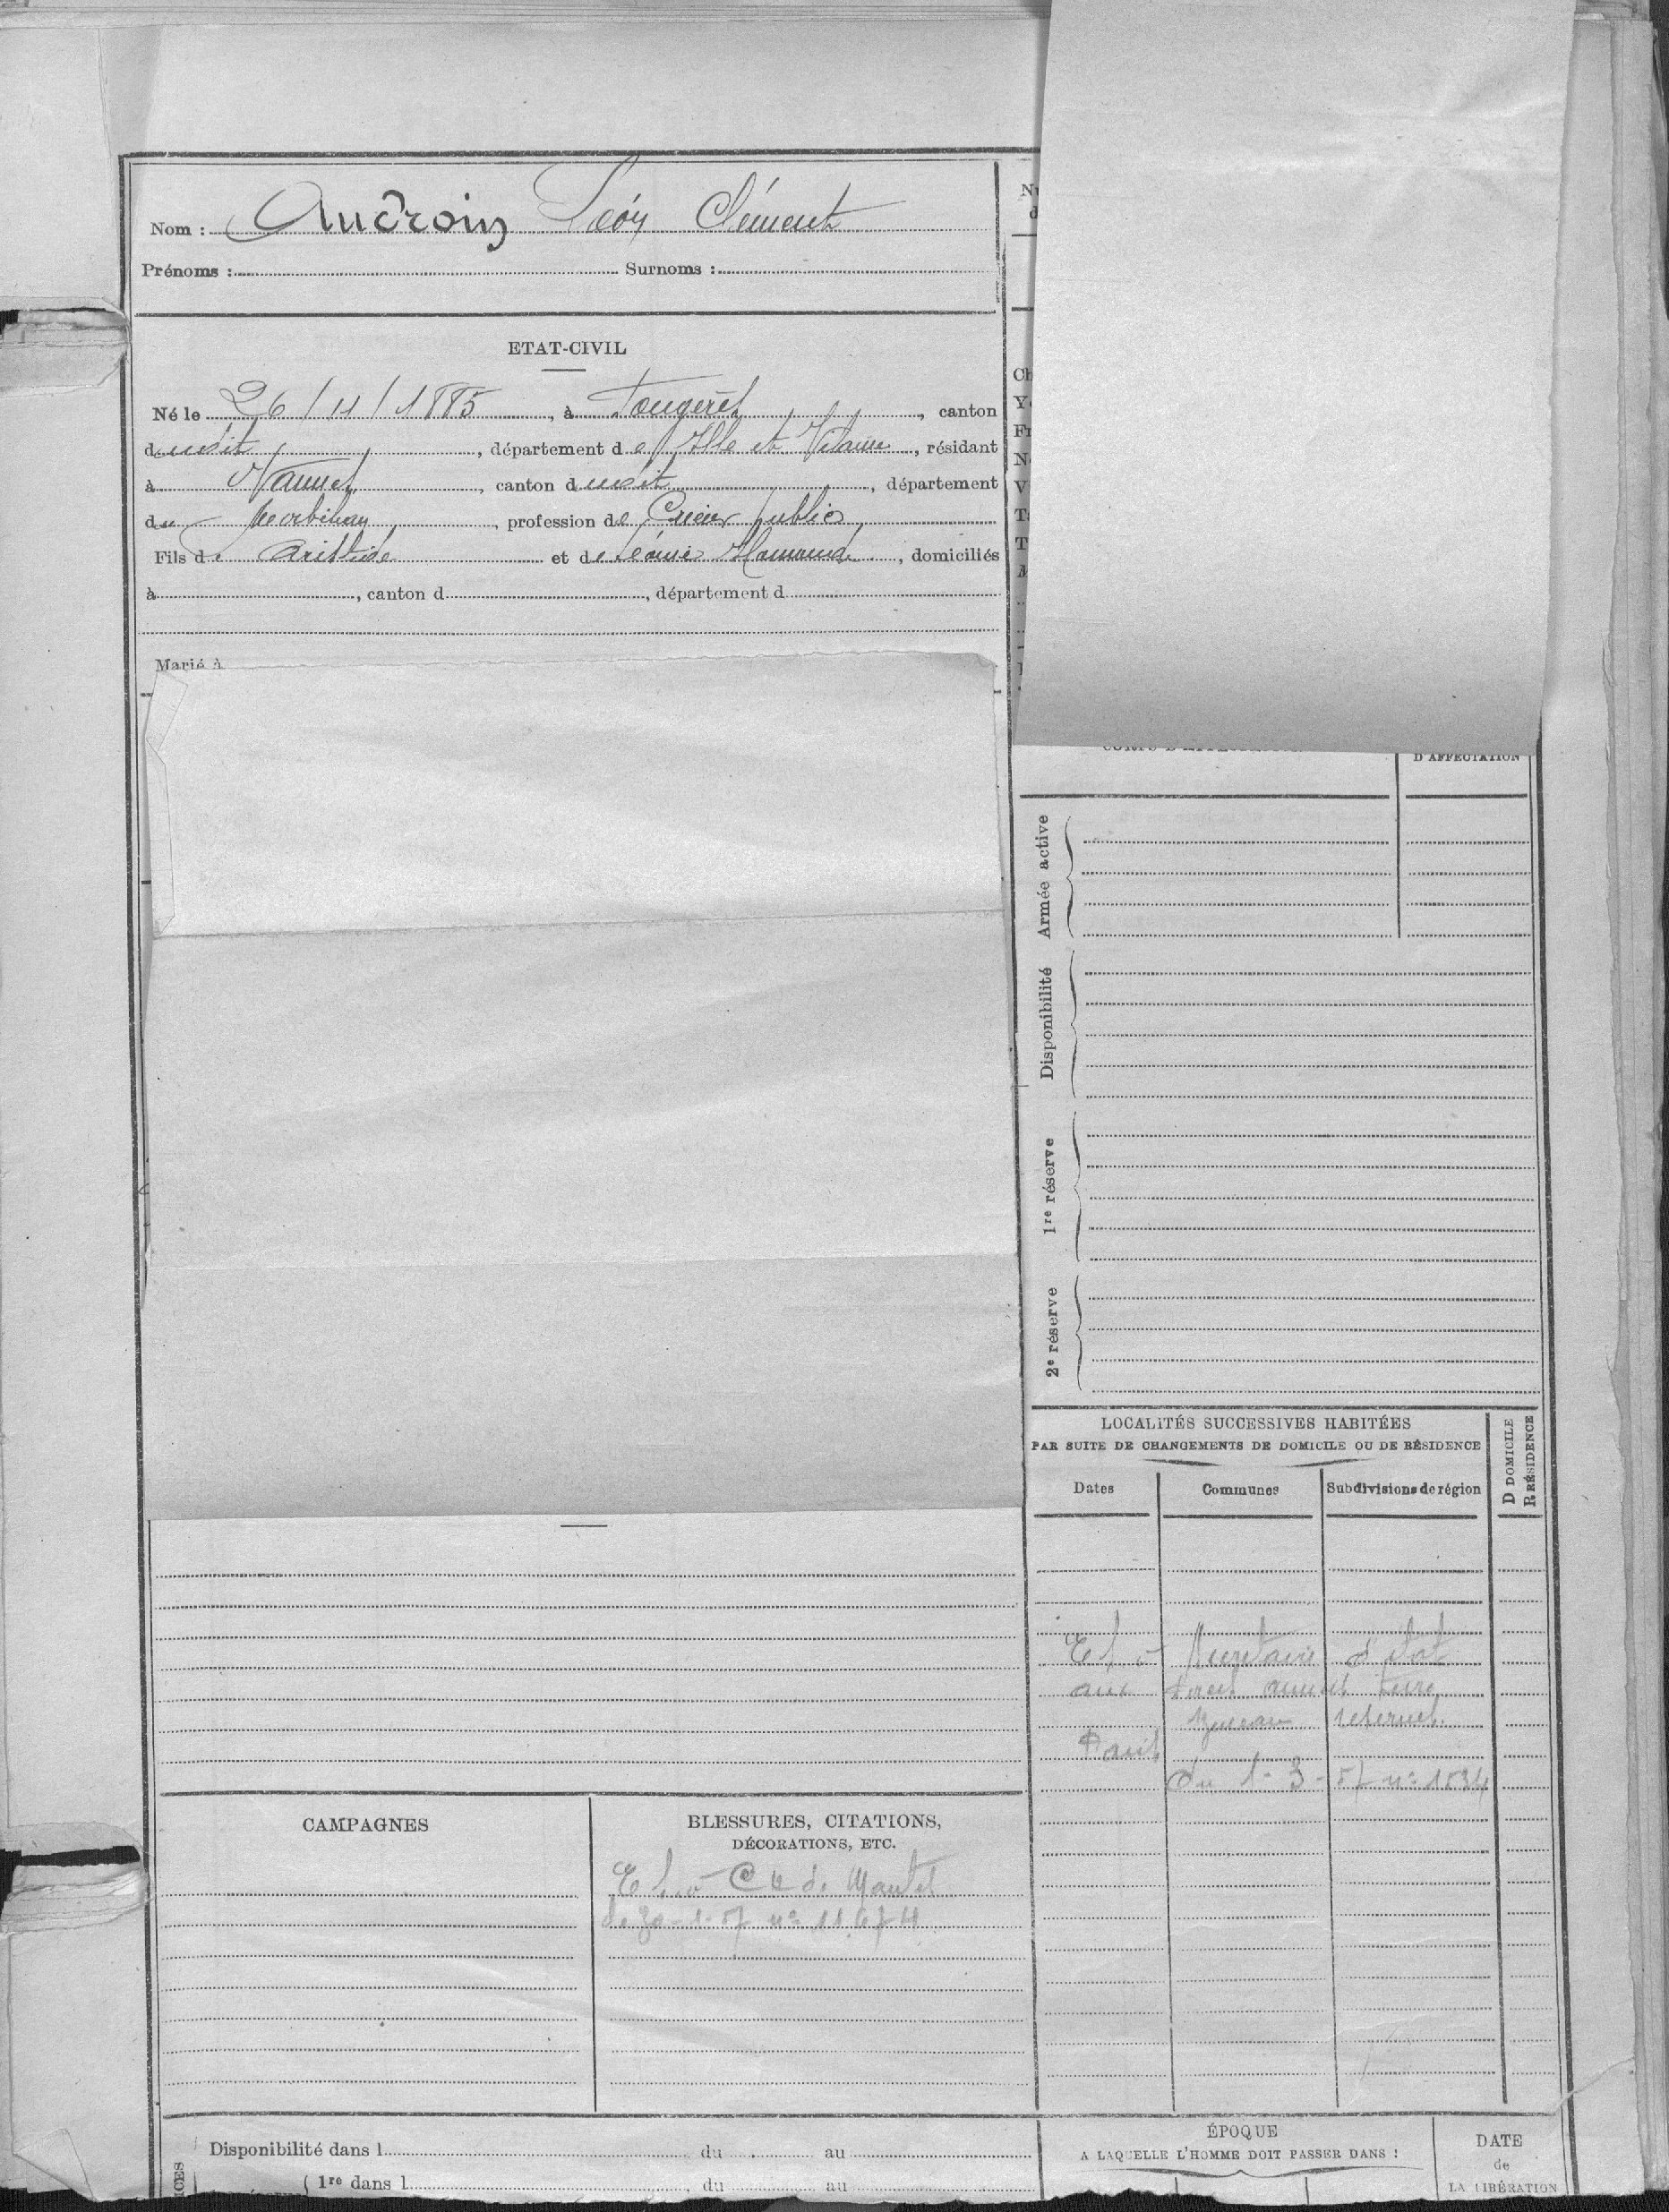 Nom : Audroin Léon Clément
Prénoms : Surnoms :
ETAT-CIVIL
Né le 26/11/1885, à Fougères, canton
dudit, département de Ille et Vilaine, résidant
à Vannes, canton dudit, département
du Morbihan, profession de Crieur public
Fils de Aristide et de Léonie Hamard, domiciliés
à , canton d , département d
Marié à
D'AFFECTATION
Armée active
Disponibilité
1re réserve
2e réserve
LOCALITÉS SUCCESSIVES HABITÉES
PAR SUITE DE CHANGEMENTS DE DOMICILE OU DE RÉSIDENCE
D DOMICILE
R RÉSIDENCE
Dates
Communes
Subdivisions de région
Secrétaire d'état
aux forces armées terre
bureau réserves
Paris
du 1-3-57 n° 1534
CAMPAGNES
BLESSURES, CITATIONS,
DÉCORATIONS, ETC.
de 30-1-57 n° 11674
Disponibilité dans l du au
1re dans l du au
ÉPOQUE
A LAQUELLE L'HOMME DOIT PASSER DANS :
DATE
de
LA LIBÉRATION